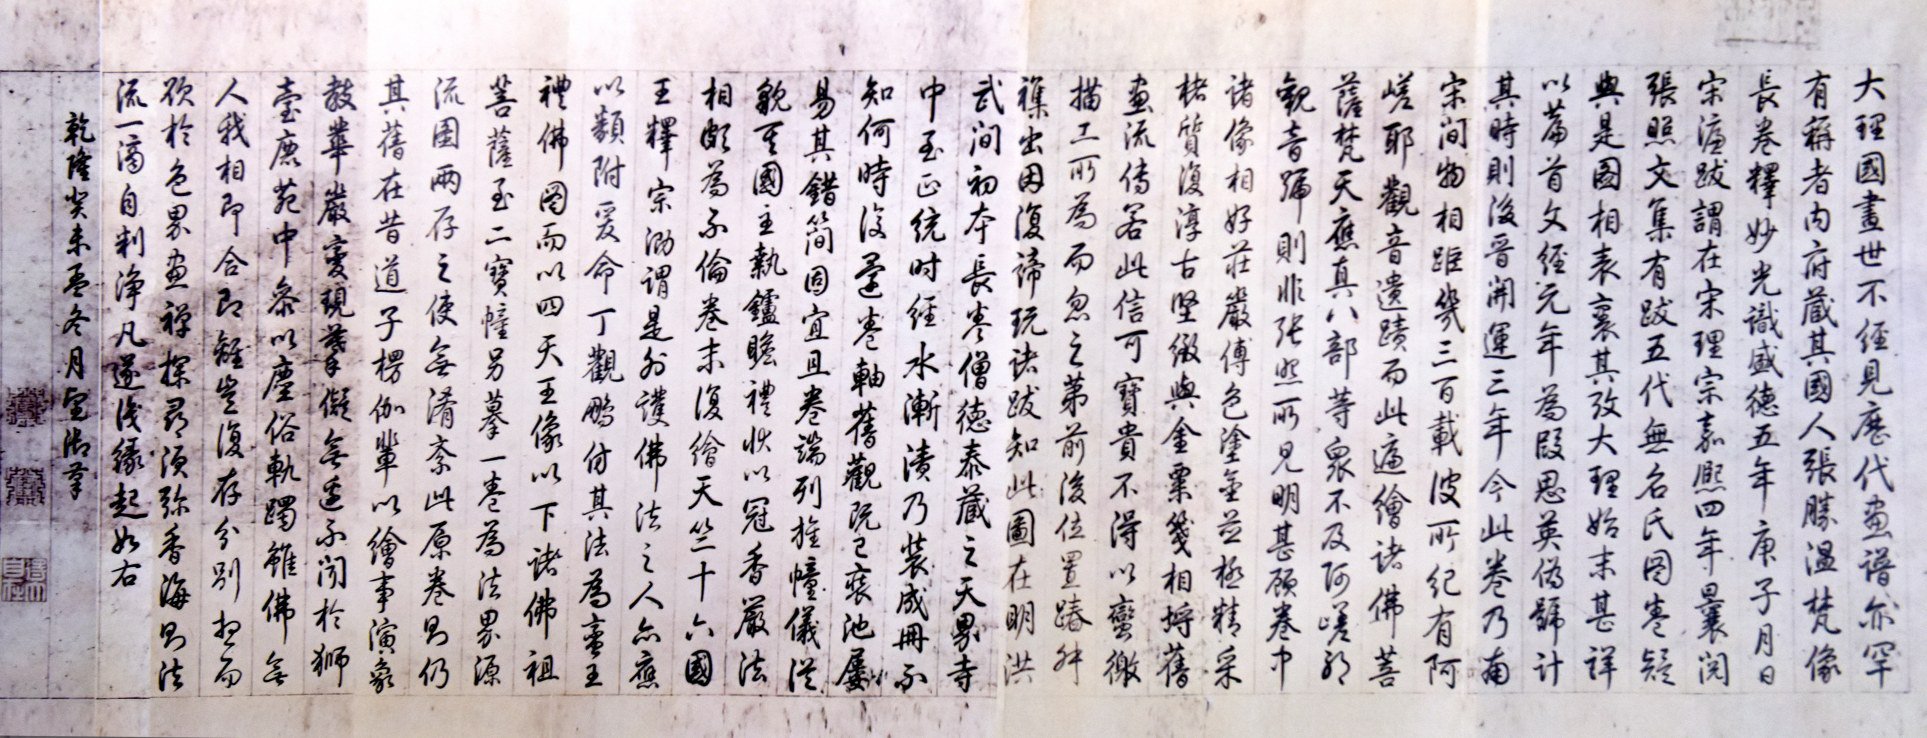 大理國畫世不經見歷代畫譜亦罕
有稱者內府藏其國人張勝溫梵像
長卷釋妙光識盛德五年庚子月日
宋濂跋謂在宋理宗嘉熙四年曩閱
張照文集有跋五代無名氏圖卷疑
與是圖相表裏其攷大理始末甚詳
以篇首文經元年為段思英偽號計
其時則後晉開運三年今此卷乃南
宋間物相距幾三百載彼所紀有阿
嵯耶觀音遺蹟而此遍繪諸佛菩
薩梵天應真八部等眾不及阿嵯耶
觀音號則非張照所見明甚顧卷中
諸像相好莊嚴傅色塗金並極精采
楮質復淳古堅緻與金粟箋相埒舊
畫流傳若此信可寶貴不得以蠻徼
描工所為而忽之第前後位置踳舛
襍出因復諦玩諸跋知此圖在明洪
武間初本長卷僧德泰藏之天界寺
中至正統时經水漸漬乃裝成冊不
知何時復還卷軸舊觀既已裝池屢
易其錯簡固宜且卷端列旌幢儀從
貌其國主執鑪瞻禮狀以冠香嚴法
相頗為不倫卷末復繪天竺十六國
王釋宗泐謂是外護佛法之人亦應
以類附爰命丁觀鵬仿其法為蠻王
禮佛圖而以四天王像以下諸佛祖
菩薩至二寶幢另摹一卷為法界源
流圖兩存之使無淆紊此原卷則仍
其舊在昔道子楞伽輩以繪事演象
教華嚴變現摹擬無遺不聞於獅
臺鹿苑中參以塵俗軌躅雖佛無
人我相即合即離豈復存分別想而
欲於色界畫禪探尋須弥香海則法
流一滴自判淨凡遂識緣起如右
乾隆癸未孟冬月望御筆